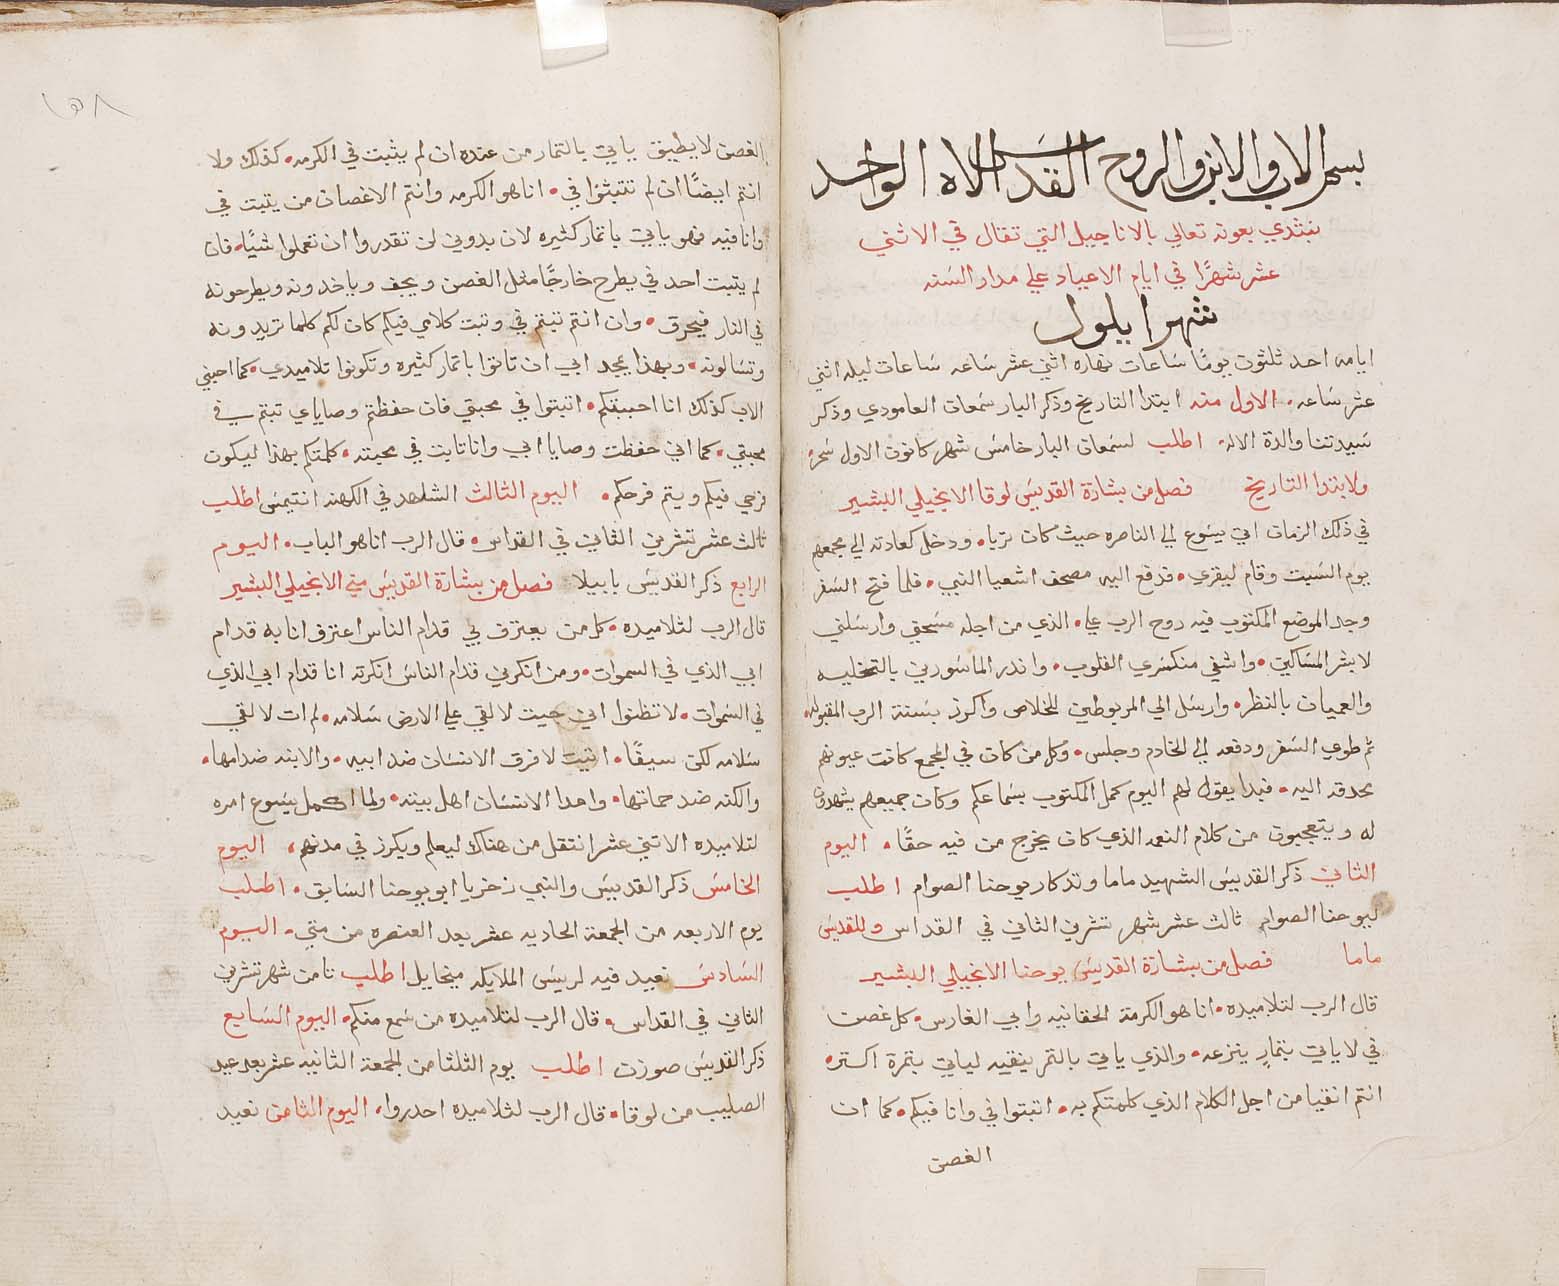 بسم الاب والابن والروح القدس الاله الواحد
نبتدي بعونه تعالي بالاناجيل التي تقال في الاثني
عشر شهرًا في ايام الاعياد علي مدار السنه
شهر ايلول
ايامه احد ثلثون يومًا ساعات نهاره اثني عشر ساعه ساعات ليله اثني
عشر ساعه. الاول منه ابتدا التاريخ وذكر البار سمعان العامودي وذكر
سيدتنا والدة الاله اطلب لسمعان البار خامس شهر كانون الاول سحر
ولابتدا التاريخ فصل من بشارة القديس لوقا الانجيلي البشير
في ذلك الزمان اتي يسوع الي الناصره حيث كان تربا. ودخل كعادته الي مجمعهم
يوم السبت وقام ليقري. فدفع اليه مصحف اشعيا النبي. فلما فتح السفر
وجد الموضع المكتوب فيه روح الرب علي. الذي من اجله مسحني وارسلني
لابشر المساكين. واشفي منكسري القلوب. واندر الماسورين بالتخليه
والعميان بالنظر. وارسل الي المربوطين للخلاص واكرز بسنة الرب المقبوله.
ثم طوي السفر ودفعه الي الخادم وجلس. وكل من كان في المجمع كانت عيونهم
محدقه اليه. فبدا يقول لهم اليوم كمل المكتوب بسماعكم وكان جميعهم يشهدون
له ويتعجبون من كلام النعمه الذي كان يخرج من فيه حقًا. اليوم
الثاني ذكر القديس الشهيد ماما وتدكار يوحنا الصوام اطلب
ليوحنا الصوام ثالث عشر شهر تشرين الثاني في القداس وللقديس
ماما فصل من بشارة القديس يوحنا الانجيلي البشير
قال الرب لتلاميده. انا هو الكرمة الحقانيه وابي الغارس. كل غصن
في لا ياتي بثمارٍ ينزعه. والذي ياتي بالثمر ينقيه لياتي بثمرة اكتر.
انتم انقيا من اجل الكلام الذي كلمتكم به. اتبتوا في وانا فيكم. كما ان
الغصن
١٥٨
الغصن لا يطيق ياتي بالثمار من عنده ان لم يثبت في الكرمه. كذلك ولا
انتم ايضًا ان لم تتبثوا في. انا هو الكرمه وانتم الاغصان من يتبت في
وانا فيه فهو ياتي باثمار كثيره لان بدوني لن تقدروا ان تعملوا شيًا. فان
لم يتبت احد في يطرح خارجًا مثل الغصن ويجف وياخدونه ويطرحونه
في النار فيحرق. وان انتم تبتم في وتبت كلامي فيكم كان لكم كلما تريدونه
وتسالونه. وبهذا يمجد ابي ان تاتوا باثمار كثيره وتكونوا تلاميدي. كما احبني
الاب كذلك انا احببتكم. اتبتوا في محبتي فان حفظتم وصاياي تبتم في
محبتي. كما اني حفظت وصايا ابي وانا تابت في محبته. كلمتكم بهذا ليكون
فرحي فيكم ويتم فرحكم. اليوم الثالث الشاهد في الكهنه انتيمس اطلب
ثالث عشر تشرين الثاني في القداس. قال الرب انا هو الباب. اليوم
الرابع ذكر القديس بابيلا فصل من بشارة القديس متي الانجيلي البشير
قال الرب لثلاميده. كل من يعترف بي قدام الناس اعترف انا به قدام
ابي الذي في السموات. ومن انكرني قدام الناس انكرته انا قدام ابي الذي
في السموات. لا تظنوا اني جيت لالقي علي الارض سلامه. لم ات لالقي
سلامه لكن سيفًا. اتيت لافرق الانسان ضد ابيه. والابنه ضد امها.
والكنه ضد حماتها. واعدا الانسان اهل بيته. ولما اكمل يسوع امره
لتلاميده الاتني عشر انتقل من هناك ليعلم ويكرز في مدنهم. اليوم
الخامس ذكر القديس والنبي زخريا ابو يوحنا السابق. اطلب
يوم الاربعه من الجمعة الحاديه عشر بعد العنصره من متي. اليوم
السادس نعيد فيه لريس الملايكه ميخايل اطلب تامن شهر تشرين
الثاني في القداس. قال الرب لتلاميده من سمع منكم. اليوم السابع
ذكر القديس صوزن اطلب يوم الثلثا من الجمعة الثانيه عشر بعد عيد
الصليب من لوقا. قال الرب لثلاميده احدروا. اليوم الثامن نعيد